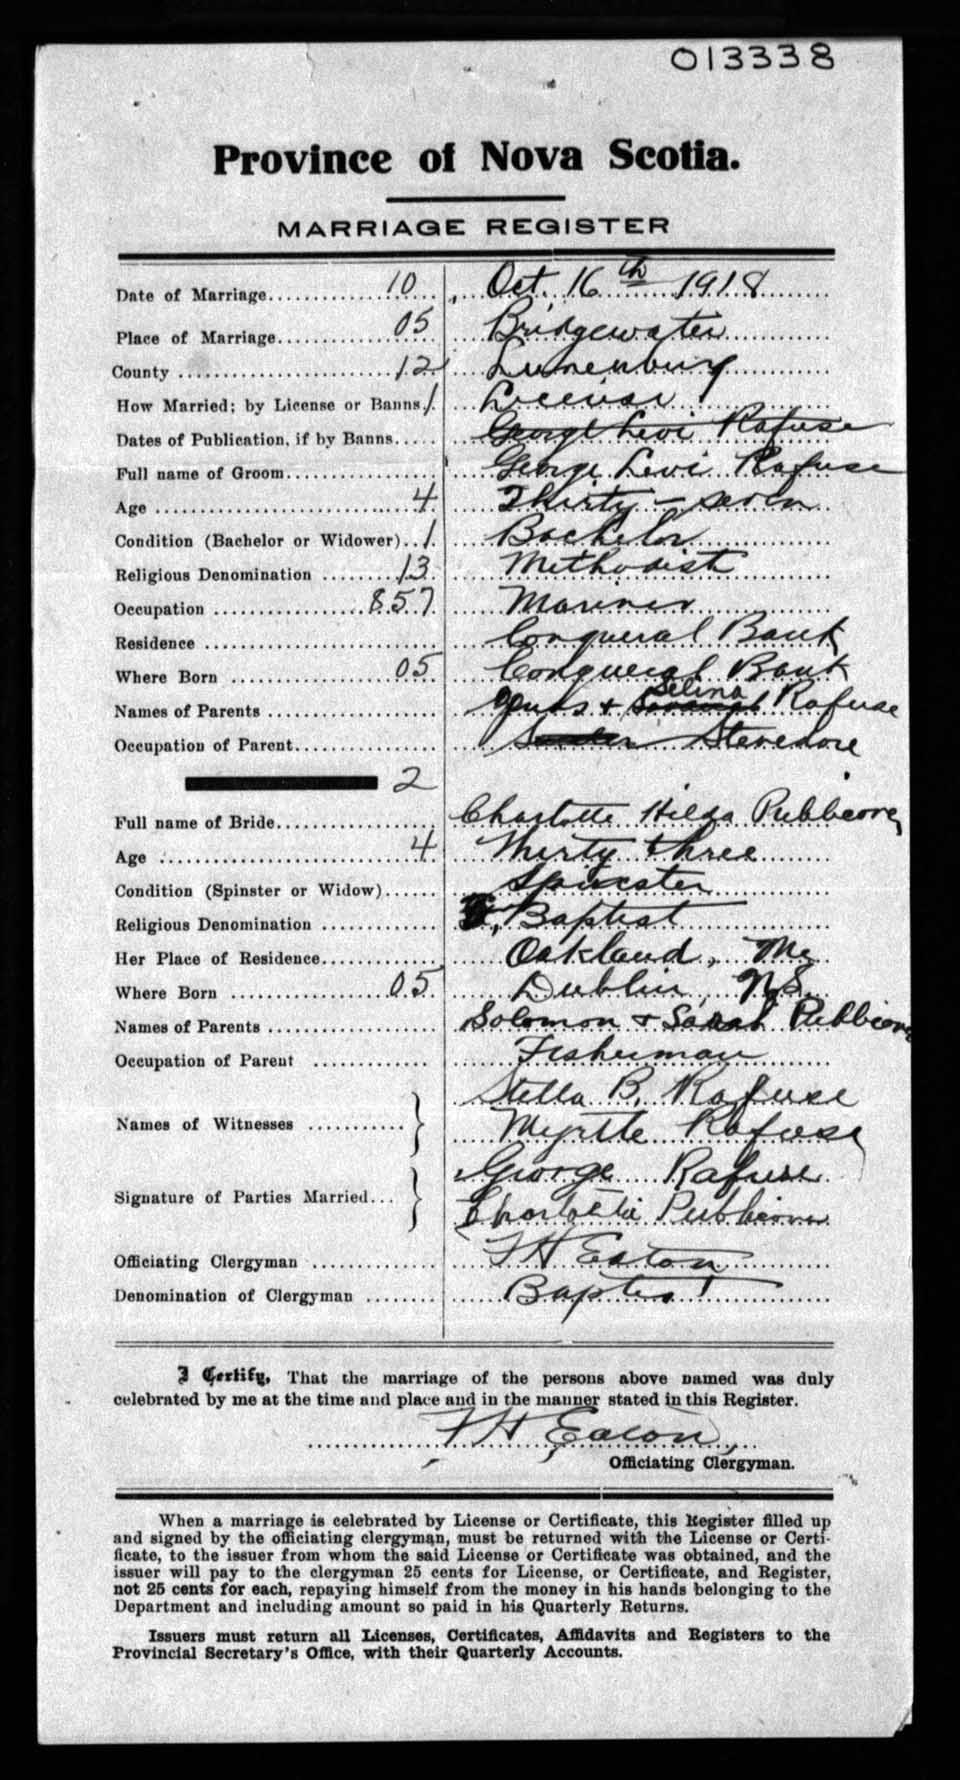 013338
Province of Nova Scotia.
MARRIAGE REGISTER
Date of Marriage 10 Oct. 16th 1918
Place of Marriage 05 Bridgewater
County 12 Lunenburg
How Married; by License or Banns 1 License
Dates of Publication, if by Banns George Levi Rafuse
Full name of Groom George Levi Rafuse
Age 4 Thirty-seven
Condition (Bachelor or Widower) 1 Bachelor
Religious Denomination 13 Methodist
Occupation 857 Mariner
Residence Conqueral Bank
Where Born 05 Conqueral Bank
Names of Parents & Selina Rafuse
Occupation of Parent Stevedore
2
Full name of Bride Charlotte Hilda Publicover
Age 4 Thirty three
Condition (Spinster or Widow) Spinster
Religious Denomination Baptist
Her Place of Residence Oakland, Me
Where Born 05 Dublin, N.S.
Names of Parents Solomon & Sarah Publicover
Occupation of Parent Fisherman
Names of Witnesses Stella B. Rafuse
Myrtle Rafuse
Signature of Parties Married George Rafuse
Charlotte Publicover
Officiating Clergyman F H Eaton
Denomination of Clergyman Baptist
I Certify, That the marriage of the persons above named was duly
celebrated by me at the time and place and in the manner stated in this Register.
F H Eaton,
Officiating Clergyman.
When a marriage is celebrated by License or Certificate, this Register filled up
and signed by the officiating clergyman, must be returned with the License or Certi-
ficate, to the issuer from whom the said License or Certificate was obtained, and the
issuer will pay to the clergyman 25 cents for License, or Certificate, and Register,
not 25 cents for each, repaying himself from the money in his hands belonging to the
Department and including amount so paid in his Quarterly Returns.
Issuers must return all Licenses, Certificates, Affidavits and Registers to the
Provincial Secretary's Office, with their Quarterly Accounts.